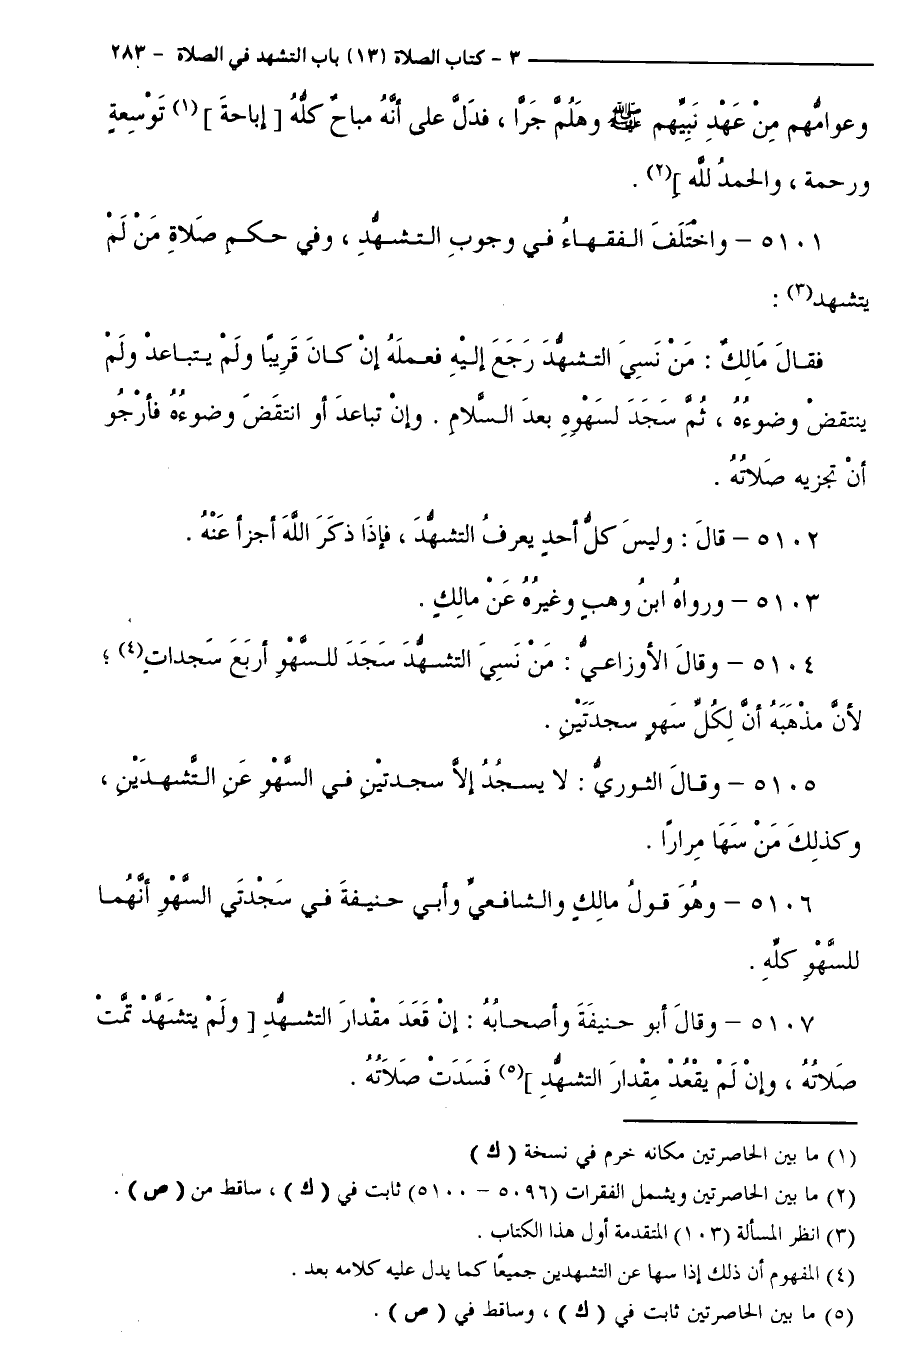 ٣ - كتاب الصلاة (١٣) باب التشهد في الصلاة - ٢٨٣
وعوامُّهم مِنْ عَهْدِ نَبِيِّهم ﷺ وهَلُمَّ جَرًّا ، فدَلَّ على أنَّهُ مباحٌ كلَّهُ [ إباحةَ ](١) تَوْسِعةٍ
ورحمة ، والحمدُ للَّه ](٢) .
٥١٠١ - واخْتَلَفَ الفقهاءُ في وجوبِ التشهُّدِ ، وفي حكمِ صَلاةِ مَنْ لَمْ
يتشهد(٣) :
فقالَ مَالِكٌ : مَنْ نَسِيَ التشهُّدَ رَجَعَ إليْهِ فعملَهُ إنْ كانَ قَرِيبًا ولَمْ يتباعدْ ولَمْ
ينتقضْ وضوءُهُ ، ثُمَّ سَجَدَ لسَهْوِهِ بعدَ السَّلامِ . وإنْ تباعدَ أو انتقَضَ وضوءُهُ فأرْجُو
أنْ تجزيه صَلاتُهُ .
٥١٠٢ - قالَ : وليسَ كلُّ أحدٍ يعرفُ التشهُّدَ ، فإذَا ذكَرَ اللَّهَ أجزأ عَنْهُ .
٥١٠٣ - ورواهُ ابنُ وهبٍ وغيرُهُ عَنْ مالكٍ .
٥١٠٤ - وقالَ الأوزاعيُّ : مَنْ نَسِيَ التشهُّدَ سَجَدَ للسَّهْوِ أربَعَ سَجداتٍ(٤) ؛
لأنَّ مذْهَبَهُ أنَّ لِكُلِّ سَهوٍ سجدَتَيْنِ .
٥١٠٥ - وقالَ الثوريُّ : لا يسجُدُ إلاَّ سجدتيْنِ في السَّهْوِ عَنِ التَّشهدَيْنِ ،
وكذلِكَ مَنْ سَهَا مِرارًا .
٥١٠٦ - وهُوَ قولُ مالكٍ والشافعيِّ وأبي حنيفةَ في سَجْدتَي السَّهْوِ أنَّهُما
للسَّهْوِ كلِّهِ .
٥١٠٧ - وقالَ أبو حنيفَةَ وأصحابُهُ : إنْ قَعَدَ مقْدارَ التشهُّدِ [ ولَمْ يتشَهَّدْ تمَّتْ
صَلاتُهُ ، وإنْ لَمْ يقْعُدْ مِقْدارَ التشهُّدِ ](٥) فَسَدَتْ صَلاَتُهُ .
(١) ما بين الحاصرتين مكانه خرم في نسخة ( ك )
(٢) ما بين الحاصرتين ويشمل الفقرات (٥٠٩٦ - ٥١٠٠) ثابت في ( ك ) ، ساقط من ( ص ) .
(٣) انظر المسألة (١٠٣) المتقدمة أول هذا الكتاب .
(٤) المفهوم أن ذلك إذا سها عن التشهدين جميعًا كما يدل عليه كلامه بعد .
(٥) ما بين الحاصرتين ثابت في ( ك ) ، وساقط في ( ص ) .